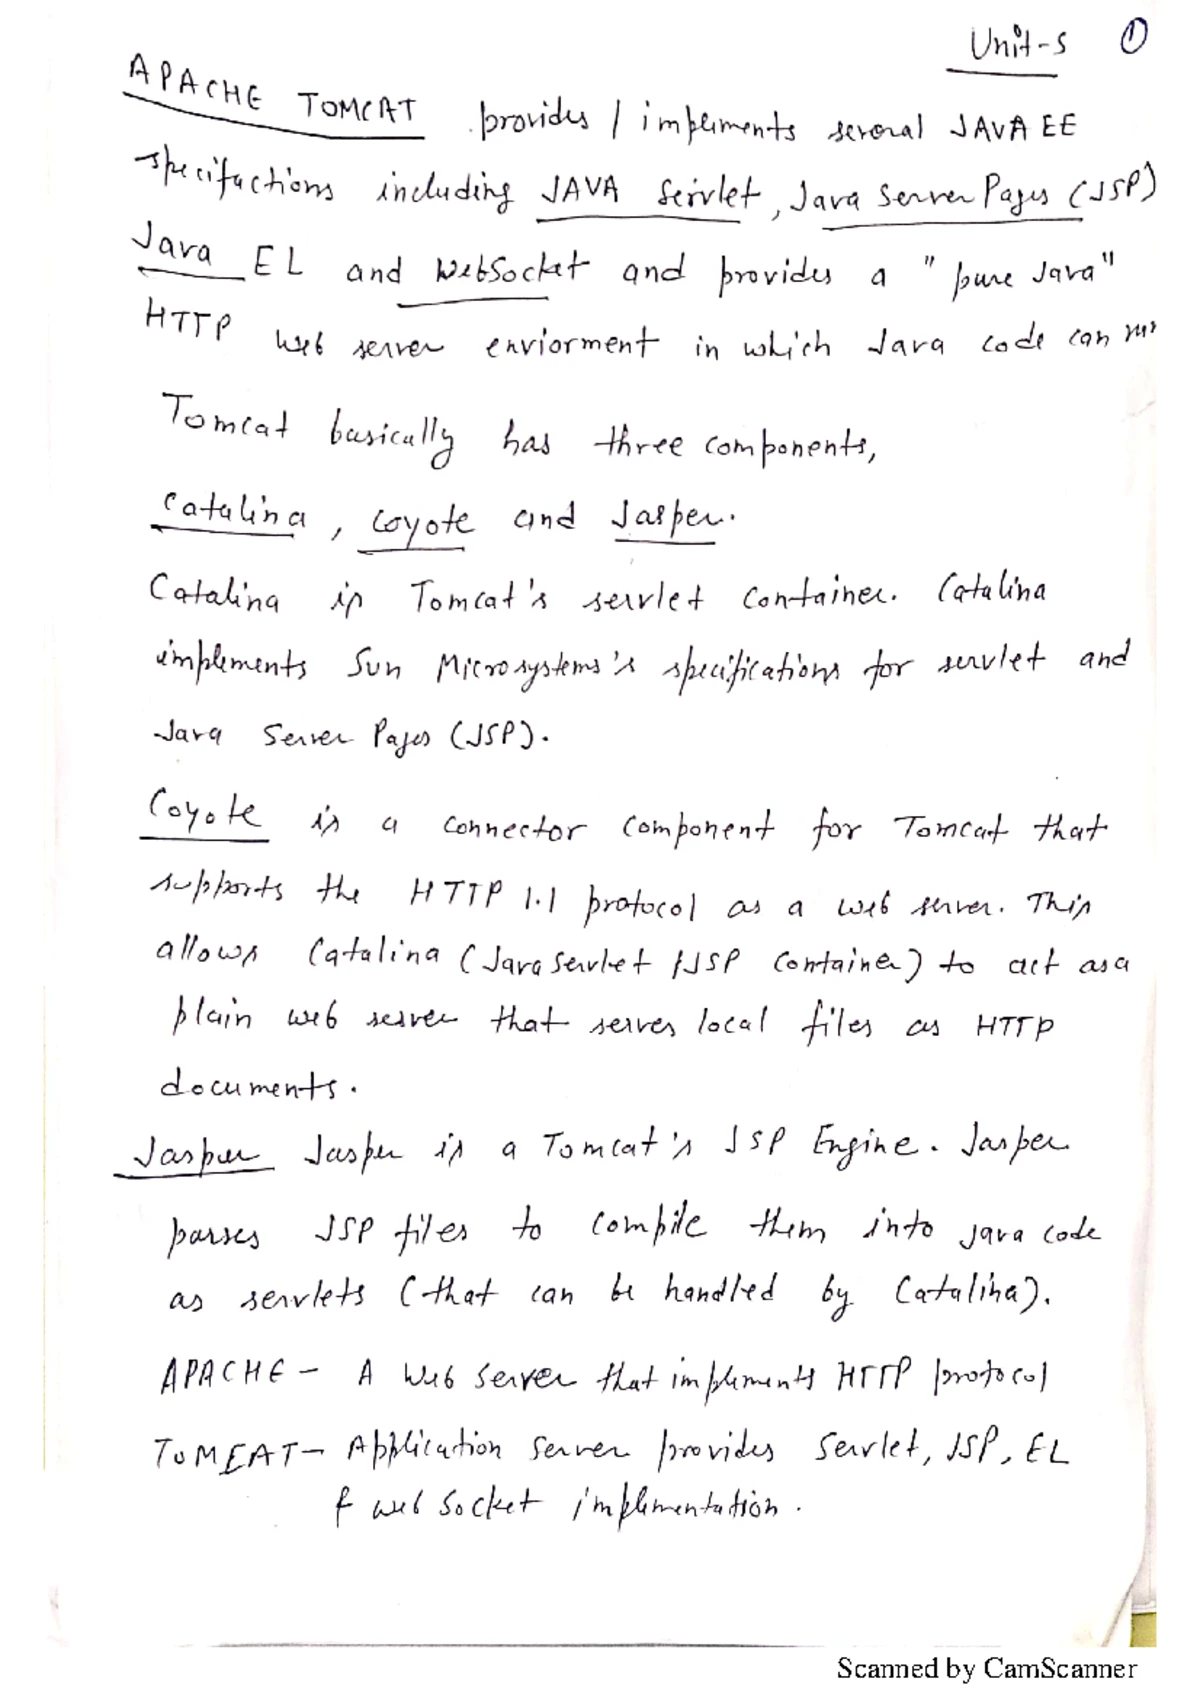 Unit-5 1
APACHE TOMCAT provides / impements several JAVA EE
specifactions including JAVA Servlet, Java Server Pages (JSP)
Java EL and WebSocket and provides a "pure Java"
HTTP web server enviorment in which Java code can
Tomcat basically has three components,
Catalina, Coyote and Jasper.
Catalina is Tomcat's servlet container. Catalina
implements Sun Microsystems's specifications for servlet and
Java Server Pages (JSP).
Coyote is a connector component for Tomcat that
supports the HTTP 1.1 protocol as a web server. This
allows Catalina (Java Servlet / JSP container) to act as a
plain web server that serves local files as HTTP
documents.
Jasper Jasper is a Tomcat's JSP Engine. Jasper
parses JSP files to compile them into java code
as servlets (that can be handled by Catalina).
APACHE - A Web Server that implements HTTP protocol
TOMCAT - Application Server provides Servlet, JSP, EL
& web Socket implementation.
Scanned by CamScanner